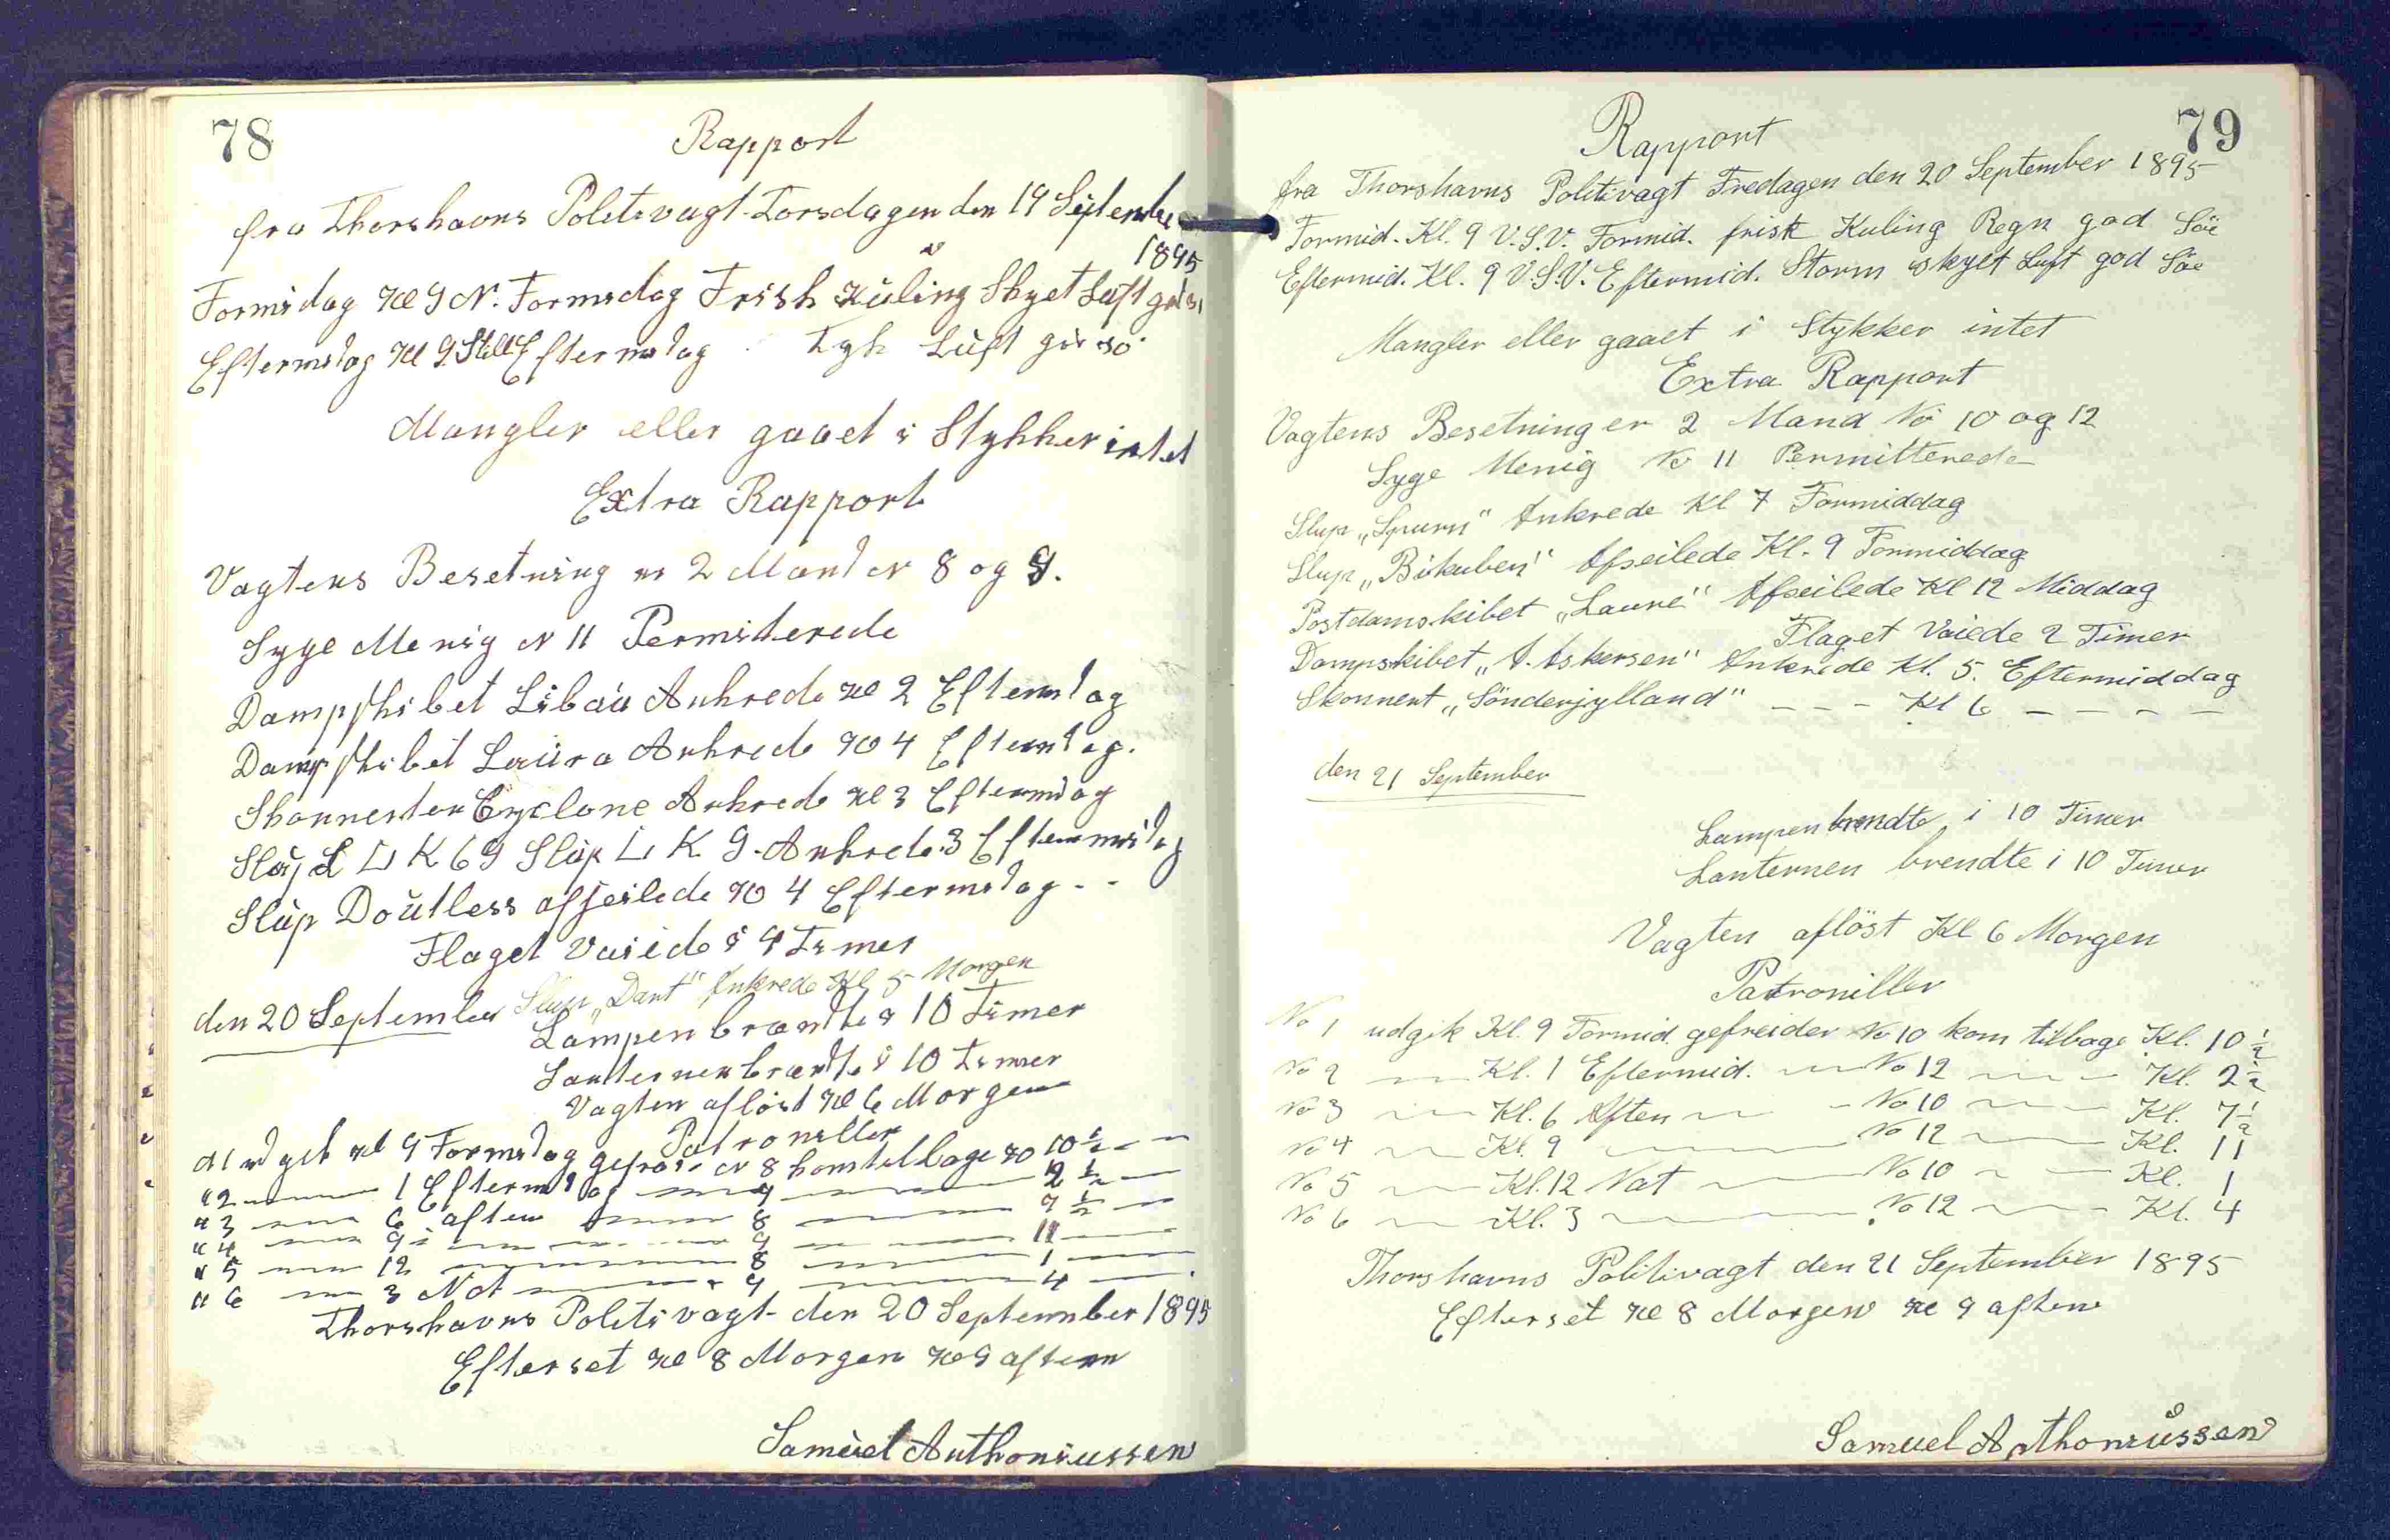 78
Rapport
fra Thorshavns Politivagt Torsdagen den 19 September
1895
Formidag Kl 9 N. Formidag Frisk Kuling Skyet Luft god
Eftermidag Kl 9. Still Eftermidag Tyk Luft go so
Mangler eller gaaet i Stykker intet
Extra Rapport
Vagtens Besetning er 2 Mand N 8 og 9.
Syge Menig N 11 Permiterede
Dampskibet Libau Ankrede Kl 2 Eftermidag
Dampskibet Laura Ankrede Kl 4 Eftermidag.
Skonnerten Cyclone Ankrede Kl 3 Eftermidag
Slup L K 69 Slup L K 9. Ankrede. 3 Eftermidag
Slup Doutless afseilede Kl 4 Eftermidag - -
Flaget Vaiede i 4 Timer
den 20 September Slup „Dant" Ankrede Kl 5 Morgen
Lampen brændte i 10 Timer
Lanternen brændte i 10 Timer
Vagten afløst Kl 6 Morgen
Patroniller
N 1 udgik Kl 9 Formidag gefrai N 8 kom tilbage Kl 10 ½
" 2 — 1 Eftermidag — 9 — 2 ½ —
" 3 — 6 aften — 8 — 7 ½ —
" 4 — 9 — 9 — 11 —
" 5 — 12 — 8 — 1 —
" 6 — 3 Nat — 9 — 4 —
Thorshavns Politivagt den 20 September 1895
Efterset Kl 8 Morgen Kl 9 aften
Samuel Anthoniussen
79
Rapport
fra Thorshavns Politivagt Fredagen den 20 September 1895
Formid. Kl. 9 V.S.V. Formid. frisk Kuling Regn god Söe
Eftermid. Kl. 9 V.S.V. Eftermid. Storm skyet Luft god Söe
Mangler eller gaaet i Stykker intet
Extra Rapport
Vagtens Besetning er 2 Mand No 10 og 12
Syge Menig No 11 Permitterede
Slup „Spurn" Ankrede Kl 7 Formiddag
Slup „Bikuben" Afseilede Kl. 9 Formiddag
Postdamskibet „Laura" Afseilede Kl 12 Middag
Flaget Vaiede 2 Timer
Dampskibet „A. Askersen" Ankrede Kl. 5. Eftermiddag
Skonnert „Sönderjylland" - - - Kl 6 - - - -
den 21 September
Lampen brendte i 10 Timer
Lanternen brendte i 10 Timer
Vagten aflöst Kl 6 Morgen
Patroniller
No 1 udgik Kl. 9 Formid. gefreider No 10 kom tilbage Kl. 10 ½
No 2 — Kl. 1 Eftermid. — No 12 — Kl. 2 ½
No 3 — Kl. 6 Aften — No 10 — Kl. 7 ½
No 4 — Kl. 9 — No 12 — Kl. 11
No 5 — Kl. 12 Nat — No 10 — Kl. 1
No 6 — Kl. 3 — No 12 — Kl. 4
Thorshavns Politivagt den 21 September 1895
Efterset Kl 8 Morgen Kl 9 aften
Samuel Anthoniussen